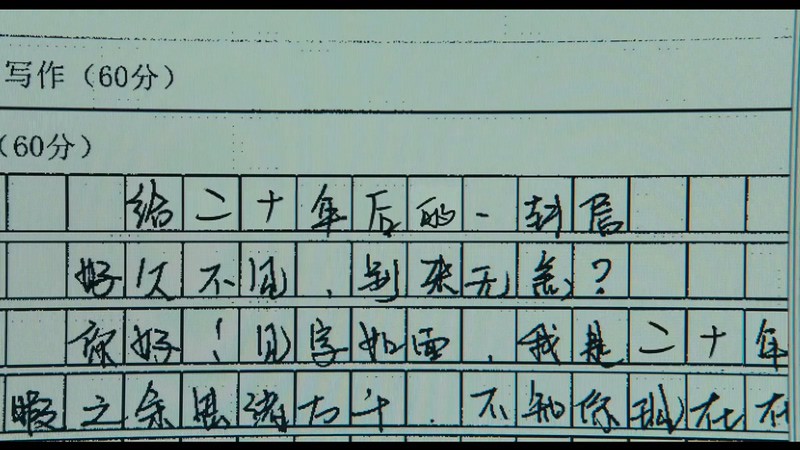 写作（60分）
（60分）
给二十年后的一封信
好久不见，别来无恙？
你好！见字如面，我是二十年
暇之余思绪万千．不知你现在在